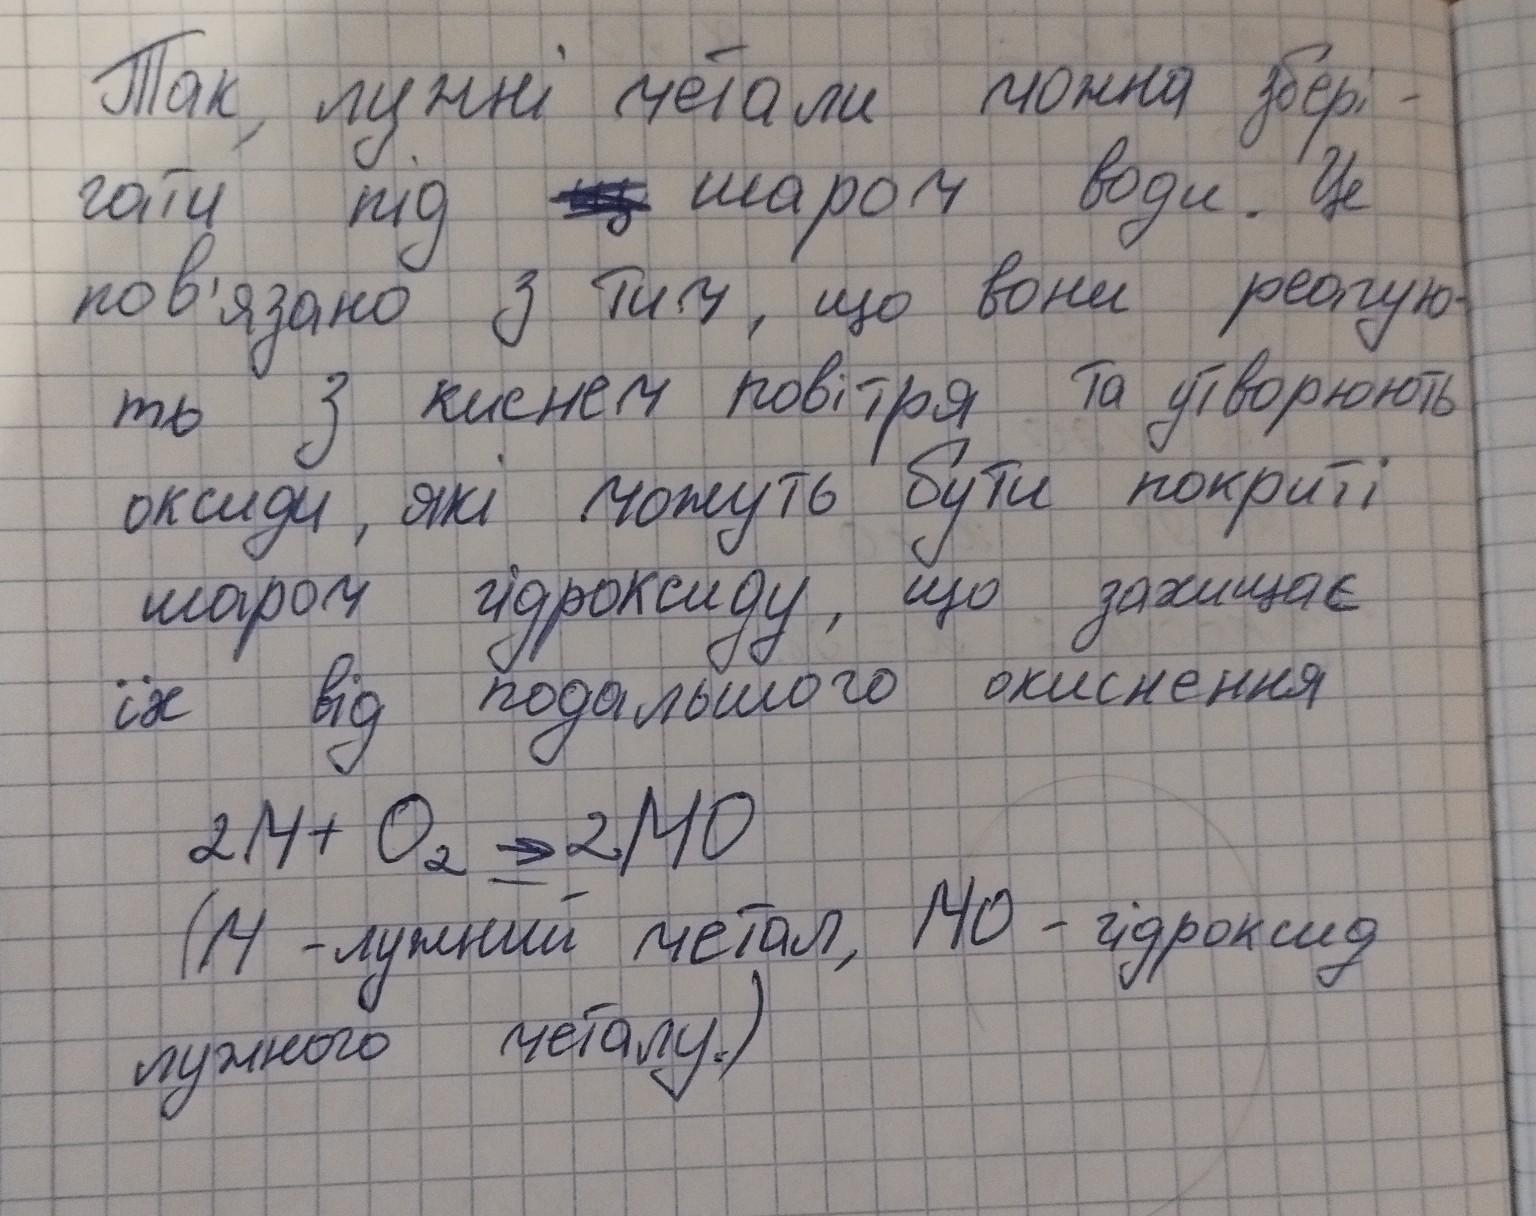 Так, лужні метали можна збері-
гати під шаром води. Це
пов'язано з тим, що вони реагую-
ть з киснем повітря та утворюють
оксиди, які можуть бути покриті
шаром гідроксиду, що захищає
їх від подальшого окиснення
2M + O₂ ⇒ 2MO
(M - лужний метал, MO - гідроксид
лужного металу.)